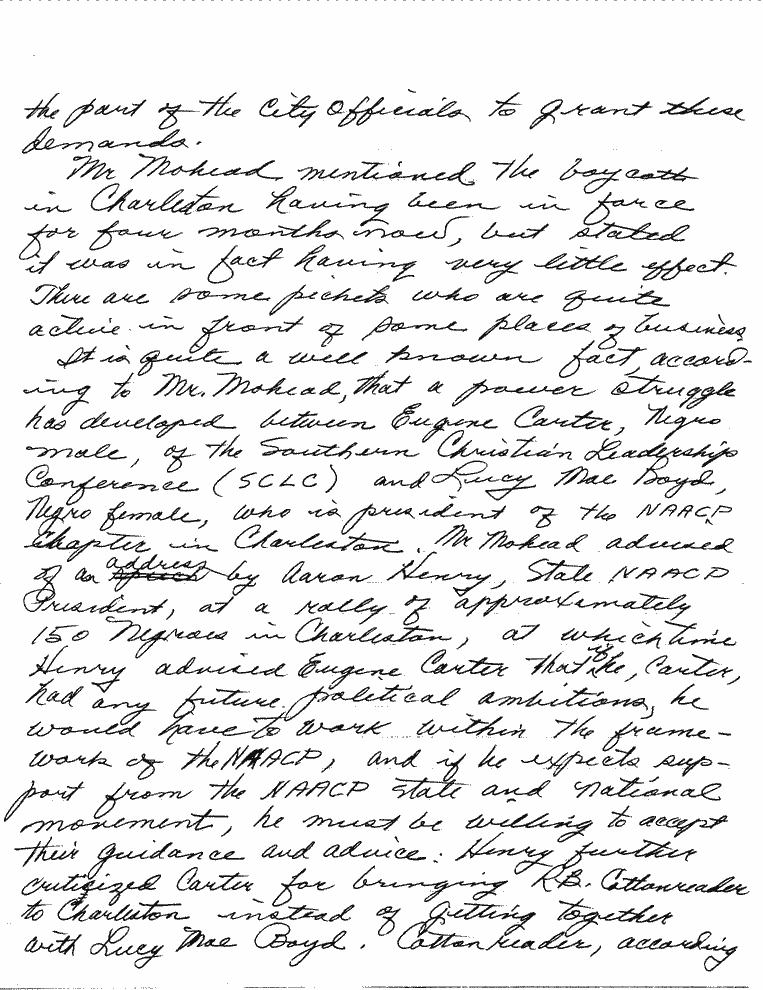 the part of the City Officials to grant these
demands.
Mr Mohead mentioned the boycott
in Charleston having been in force
for four months now, but stated
it was in fact having very little effect.
There are some pickets who are quite
active in front of some places of business.
It is quite a well known fact, accord-
ing to Mr. Mohead, that a power struggle
has developed between Eugene Carter, Negro
male, of the Southern Christian Leadership
Conference (SCLC) and Lucy Mae Boyd,
Negro female, who is president of the NAACP
Chapter in Charleston. Mr Mohead advised
of an address by Aaron Henry, State NAACP
President, at a rally of approximately
150 Negroes in Charleston, at which time
Henry advised Eugene Carter that if he, Carter,
had any future political ambitions, he
would have to work within the frame-
work of the NAACP, and if he expects sup-
port from the NAACP state and national
movement, he must be willing to accept
their guidance and advice. Henry further
critisized Carter for bringing R.B. Cottonreader
to Charleston instead of getting together
with Lucy Mae Boyd. Cottonreader, according